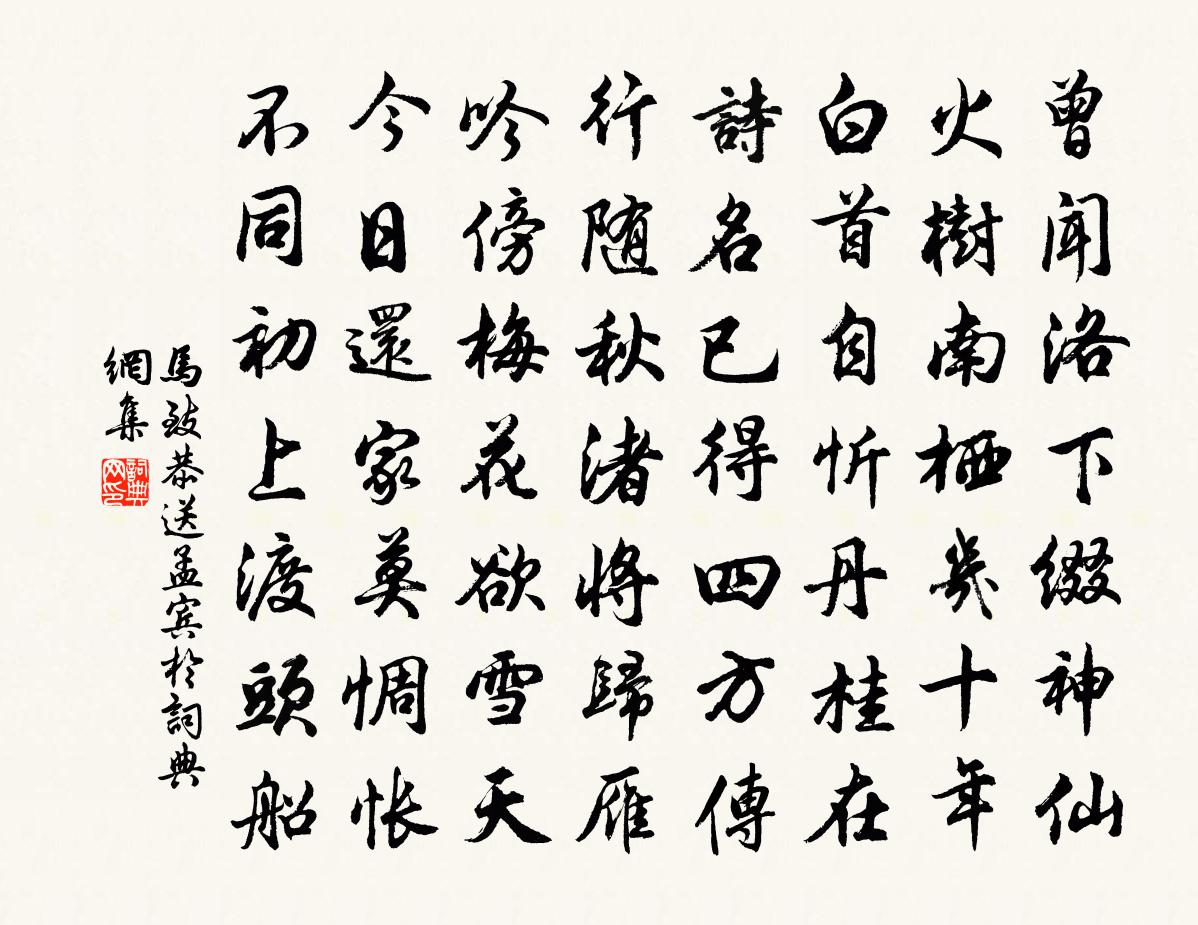 曾聞洛下綴神仙
火樹南栖幾十年
白首自忻丹桂在
詩名已得四方傳
行随秋渚將歸雁
吟傍梅花欲雪天
今日還家莫惆悵
不同初上渡頭船
馬致恭送孟宾於詞典
網集
詞典
网印